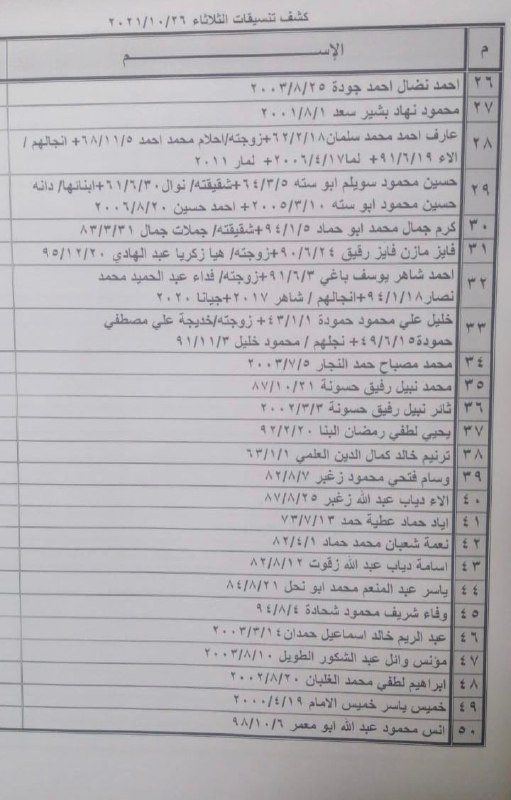 كشف تنسيقات الثلاثاء ٢٠٢١/١٠/٢٦
م الإســـم
٢٦ احمد نضال احمد جودة ٢٠٠٣/٨/٢٥
٢٧ محمود نهاد بشير سعد ٢٠٠١/٨/١
٢٨ عارف احمد محمد سلمان٦٢/٢/١٨+زوجته/احلام محمد احمد ٦٨/١١/٥+ انجالهم /
الاء ٩١/٦/١٩+ لما٢٠٠٦/٤/١٧+ لمار ٢٠١١
٢٩ حسين محمود سويلم ابو سته ٦٤/٣/٥+شقيقته/ نوال٦١/٦/٣٠+ابنائها/ دانه
حسين محمود ابو سته ٢٠٠٥/٣/١٠+ احمد حسين ٢٠٠٦/٨/٢٠
٣٠ كرم جمال محمد ابو حماد ٩٤/١/٥+شقيقته/ جملات جمال ٨٣/٣/٣١
٣١ فايز مازن فايز رفيق ٩٠/٦/٢٤+زوجته/ هيا زكريا عبد الهادي ٩٥/١٢/٢٠
٣٢ احمد شاهر يوسف باغي ٩١/٦/٣+زوجته/ فداء عبد الحميد محمد
نصار٩٤/١/١٨+انجالهم / شاهر ٢٠١٧+جيانا ٢٠٢٠
٣٣ خليل علي محمود حمودة ٤٣/١/١+ زوجته/خديجة علي مصطفي
حمودة٤٩/٦/١٥+ نجلهم / محمود خليل ٩١/١١/٣
٣٤ محمد مصباح حمد النجار ٢٠٠٣/٧/٥
٣٥ محمد نبيل رفيق حسونة ٨٧/١٠/٢١
٣٦ ثائر نبيل رفيق حسونة ٢٠٠٢/٣/٣
٣٧ يحيي لطفي رمضان البنا ٩٢/٢/٢٠
٣٨ ترنيم خالد كمال الدين العلمي ٦٣/١/١
٣٩ وسام فتحي محمود زغبر ٨٢/٨/٧
٤٠ الاء دياب عبد الله زغبر ٨٧/٨/٢٥
٤١ اياد حماد عطية حمد ٧٣/٧/١٣
٤٢ نعمة شعبان محمد حماد ٨٢/٤/١
٤٣ اسامة دياب عبد الله زقوت ٨٢/٨/١٢
٤٤ ياسر عبد المنعم محمد ابو نحل ٨٤/٨/٢١
٤٥ وفاء شريف محمود شحادة ٩٤/٨/٤
٤٦ عبد الريم خالد اسماعيل حمدان٢٠٠٣/٣/١٤
٤٧ مؤنس وائل عبد الشكور الطويل ٢٠٠٣/٨/١٠
٤٨ ابراهيم لطفي محمد الغلبان ٢٠٠٢/٨/٢٠
٤٩ خميس ياسر خميس الامام ٢٠٠٠/٤/١٩
٥٠ انس محمود عبد الله ابو معمر ٩٨/١٠/٦